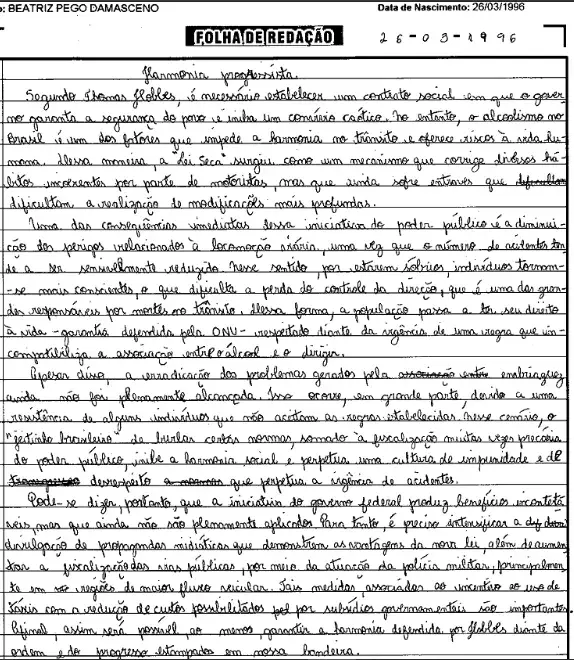 o: BEATRIZ PEGO DAMASCENO
Data de Nascimento: 26/03/1996
FOLHA DE REDAÇÃO
26-03-1996
Harmonia progressista.
Segundo Thomas Hobbes, é necessário estabelecer um contrato social em que o gover-
no garanta a segurança do povo e iniba um convívio caótico. No entanto, o alcoolismo no
Brasil é um dos fatores que impede a harmonia no trânsito e oferece riscos à vida hu-
mana. Dessa maneira, a "Lei Seca" surgiu como um mecanismo que corrige diversos há-
bitos incoerentes por parte de motoristas, mas que ainda sofre entraves que
dificultam a realização de modificações mais profundas.
Uma das consequências imediatas dessa iniciativa do poder público é a diminui-
ção dos perigos relacionados à locomoção viária, uma vez que o número de acidentes ten-
de a ser sensivelmente reduzido. Nesse sentido, por estarem sóbrios, indivíduos tornam-
-se mais conscientes, o que dificulta a perda do controle da direção, que é uma das gran-
des responsáveis por mortes no trânsito. Dessa forma, a população passa a ter seu direito
à vida - garantia defendida pela ONU - respeitado diante da vigência de uma regra que in-
compatibiliza a associação entre o álcool e o dirigir.
Apesar disso, a erradicação dos problemas gerados pela associação entre embriaguez
ainda não foi plenamente alcançada. Isso ocorre, em grande parte, devido a uma
resistência de alguns indivíduos que não aceitam as regras estabelecidas. Nesse cenário, o
"jeitinho brasileiro" de burlar certas normas, somado à fiscalização muitas vezes precária
do poder público, inibe a harmonia social e perpetua uma cultura de impunidade e de
desrespeito que perpetua a vigência de acidentes.
Pode-se dizer, portanto, que a iniciativa do governo federal produz benefícios incontestá
veis, mas que ainda não são plenamente aplicados. Para tanto, é preciso intensificar a
divulgação de propagandas midiáticas que demonstrem as vantagens da nova lei, além de aumen-
tar a fiscalização das vias públicas, por meio da atuação da polícia militar, principalmen-
te em regiões de maior fluxo veicular. Tais medidas, associadas ao incentivo ao uso de
táxis com a redução de custos possibilitados por subsídios governamentais são importantes.
Afinal, assim será possível, ao menos, garantir a harmonia defendida por Hobbes diante da
ordem e do progresso estampados em nossa bandeira.